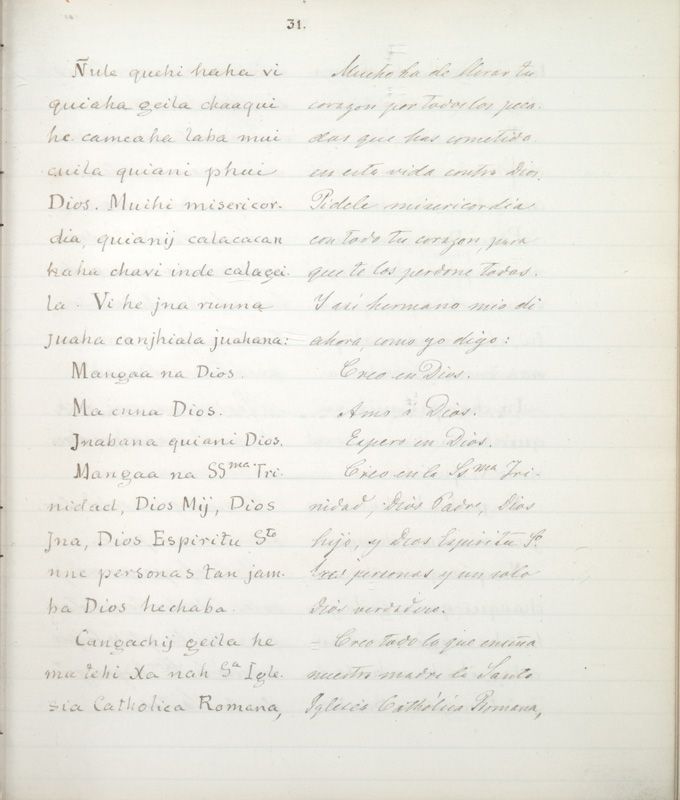 31.
Ñule quehi haha vi
quiaha geila chaaqui
he cameaha laba mui
cuila quiani phui
Dios. Muihi misericor-
dia, quianij calacacan
haha chavi inde calagei-
la. Vi he jna runna
juaha canjhiala juahana:
Mangaa na Dios.
Ma enna Dios.
Jnabana quiani Dios.
Mangaa na SSma Tri-
nidad, Dios Mij, Dios
Jna, Dios Espiritu Sto
nne personas tan jam-
ba Dios hechaba.
Cangachij geila he
ma tehi Xa nah Sa Igle-
sia Catholica Romana,
Mucho ha de llorar tu
corazon por todos los peca-
dos que has cometido
en esta vida contra Dios.
Pidele misericordia
con todo tu corazon, para
que te los perdone todos.
Y asi hermano mio di
ahora, como yo digo:
Creo en Dios.
Amo á Dios.
Espero en Dios.
Creo en la Ssma Tri-
nidad, Dios Padre, Dios
hijo, y Dios Espiritu So
tres personas y un solo
Dios verdadero.
= Creo todo lo que enseña
nuestra madre la Santa
Iglesia Cathólica Romana,